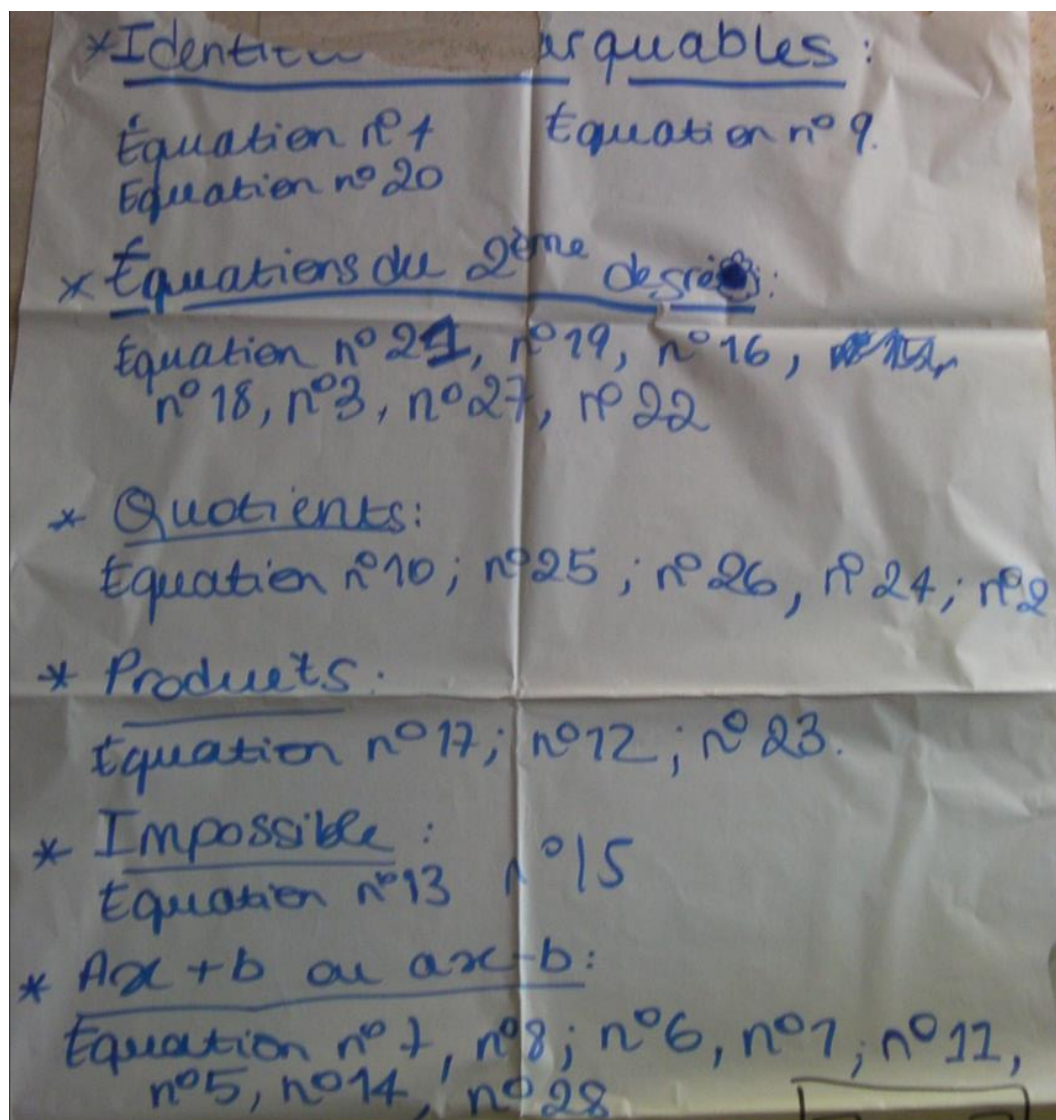 * Identit arquables :
Équation n° 4 Équation n° 9.
Equation n° 20
* Équations du 2ème degré :
Équation n° 21, n° 19, n° 16,
n° 18, n° 3, n° 27, n° 22
* Quotients :
Équation n° 10 ; n° 25 ; n° 26, n° 24 ; n° 2
* Produits :
Équation n° 17 ; n° 12 ; n° 23.
* Impossible :
Équation n° 13 n° 15
* Ax + b ou ax - b :
Équation n° 7, n° 8 ; n° 6, n° 1, n° 11,
n° 5, n° 14, n° 28